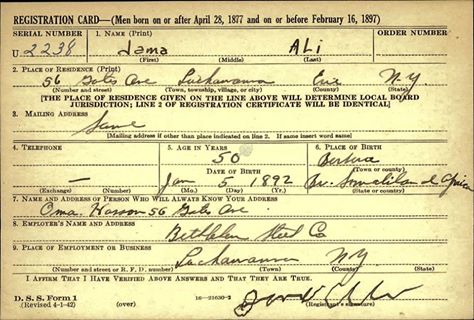 REGISTRATION CARD—(Men born on or after April 28, 1877 and on or before February 16, 1897)
SERIAL NUMBER 1. NAME (Print) ORDER NUMBER
U 2238 Jama ALI
(First) (Middle) (Last)
2. PLACE OF RESIDENCE (Print)
56 Gates Ave Lackawanna Erie N.Y.
(Number and street) (Town, township, village, or city) (County) (State)
[THE PLACE OF RESIDENCE GIVEN ON THE LINE ABOVE WILL DETERMINE LOCAL BOARD
JURISDICTION; LINE 2 OF REGISTRATION CERTIFICATE WILL BE IDENTICAL]
3. MAILING ADDRESS
Same
[Mailing address if other than place indicated on line 2. If same insert word same]
4. TELEPHONE 5. AGE IN YEARS 6. PLACE OF BIRTH
50 Berbera
DATE OF BIRTH (Town or county)
Jan 5 1892 Br. Somaliland Africa
(Exchange) (Number) (Mo.) (Day) (Yr.) (State or country)
7. NAME AND ADDRESS OF PERSON WHO WILL ALWAYS KNOW YOUR ADDRESS
Oma Hasson 56 Gates Ave.
8. EMPLOYER'S NAME AND ADDRESS
Bethlehem Steel Co
9. PLACE OF EMPLOYMENT OR BUSINESS
Lackawanna NY
(Number and street or R. F. D. number) (Town) (County) (State)
I AFFIRM THAT I HAVE VERIFIED ABOVE ANSWERS AND THAT THEY ARE TRUE.
D. S. S. Form 1
(Revised 4-1-42) (over) 16—21630-2 (Registrant's signature)